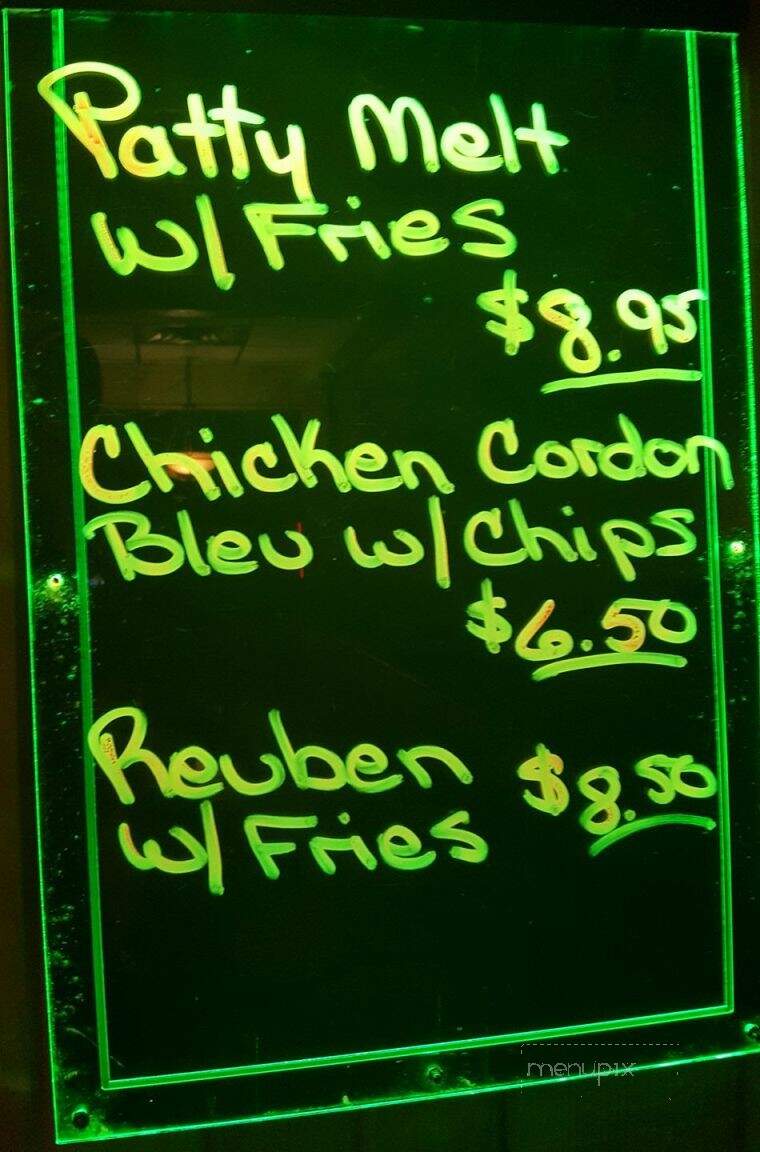 Patty Melt
w/ Fries
$8.95
Chicken Cordon
Bleu w/ Chips
$6.50
Reuben $8.50
w/ Fries
menupix